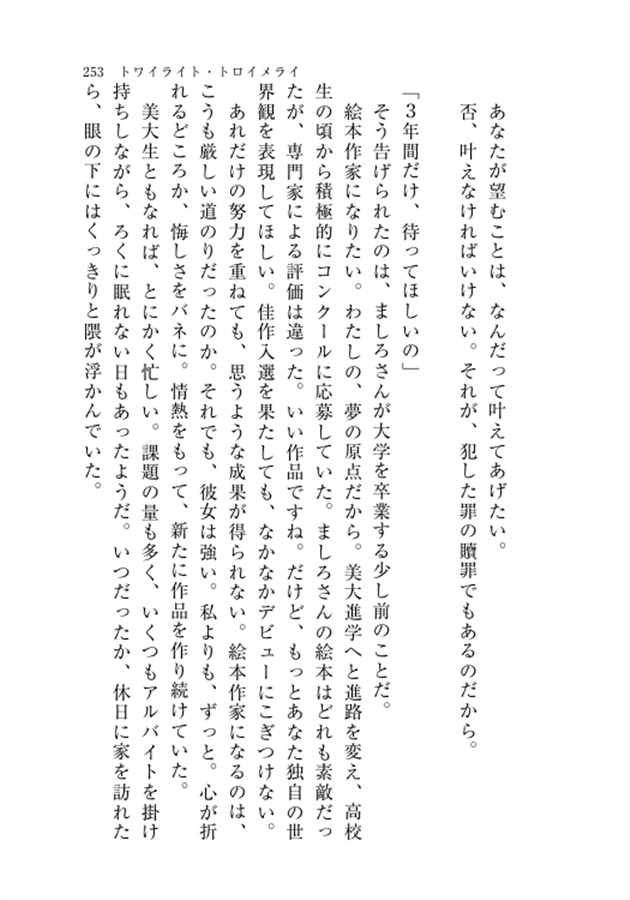 253 トワイライト・トロイメライ
あなたが望むことは、なんだって叶えてあげたい。
否、叶えなければいけない。それが、犯した罪の贖罪でもあるのだから。
「３年間だけ、待ってほしいの」
そう告げられたのは、ましろさんが大学を卒業する少し前のことだ。
絵本作家になりたい。わたしの、夢の原点だから。美大進学へと進路を変え、高校
生の頃から積極的にコンクールに応募していた。ましろさんの絵本はどれも素敵だっ
たが、専門家による評価は違った。いい作品ですね。だけど、もっとあなた独自の世
界観を表現してほしい。佳作入選を果たしても、なかなかデビューにこぎつけない。
あれだけの努力を重ねても、思うような成果が得られない。絵本作家になるのは、
こうも厳しい道のりだったのか。それでも、彼女は強い。私よりも、ずっと。心が折
れるどころか、悔しさをバネに。情熱をもって、新たに作品を作り続けていた。
美大生ともなれば、とにかく忙しい。課題の量も多く、いくつもアルバイトを掛け
持ちしながら、ろくに眠れない日もあったようだ。いつだったか、休日に家を訪れた
ら、眼の下にはくっきりと隈が浮かんでいた。